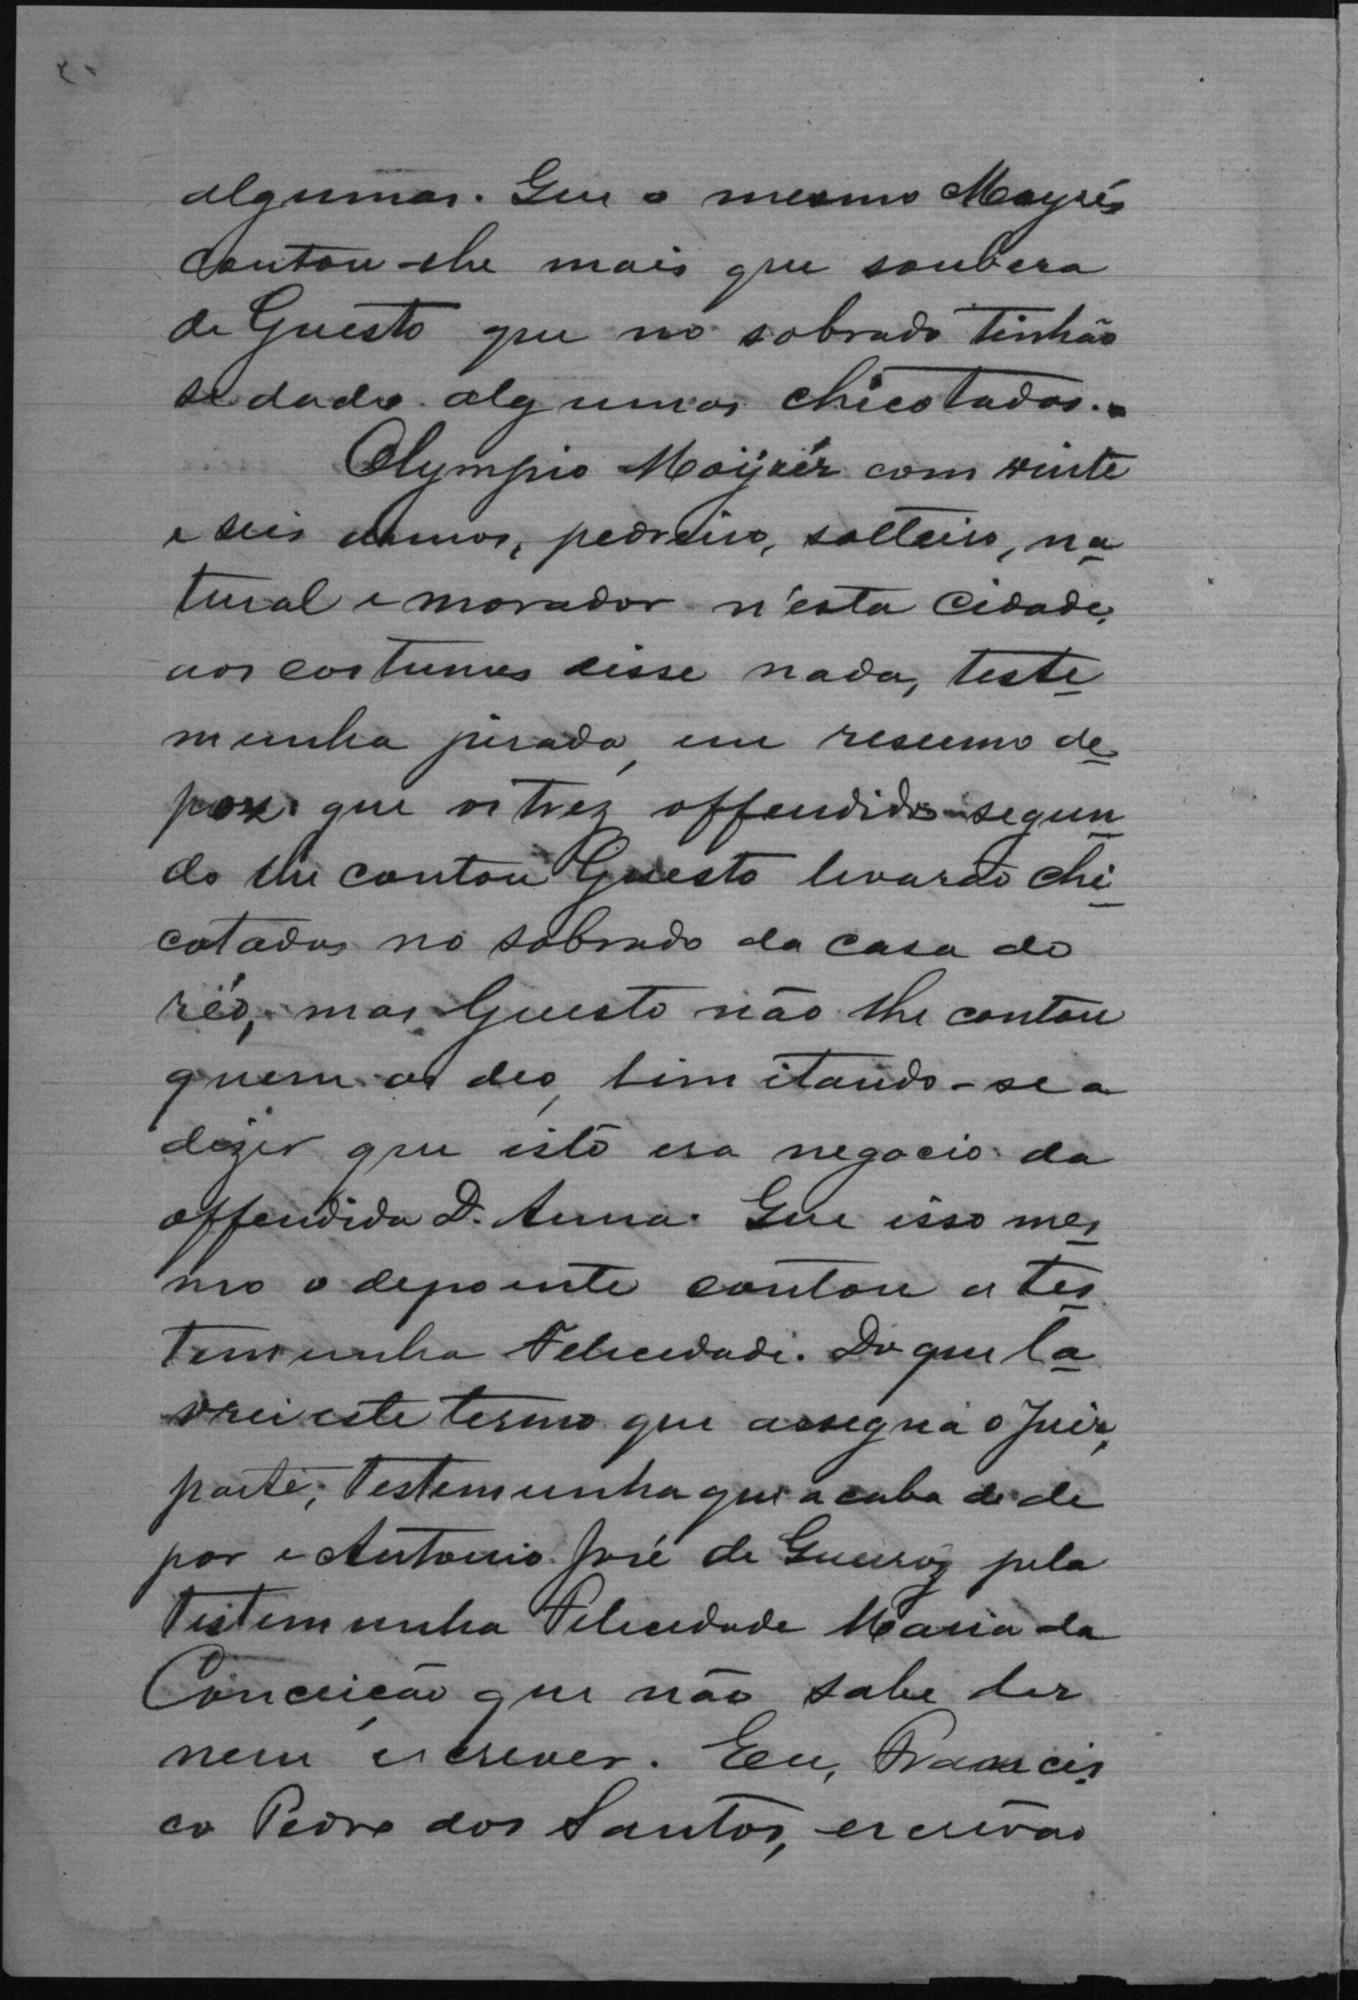 algumas. Que o mesmo Moysés
contou-lhe mais que soubera
de Questo que no sobrado tinhão
se dado algumas chicotadas.
Olympio Moÿsés com vinte
e seis annos, pedreiro, solteiro, na
tural e morador n'esta Cidade,
aos costumes disse nada, teste
munha jurada, em resumo de
poz: que os trez offendidos segun
do lhe contou Questo levarão chi
cotadas no sobrado da casa do
réo, mas Questo não lhe contou
quem as deo, limitando-se a
dizer que isto era negocio da
offendida D. Anna. Que isso mes
mo o depoente contou a tes
temunha Felicidade. Do que la
vrei este termo que assigna o Juiz,
parte, testemunha que acaba de de
por e Antonio José de Queiroz pela
testemunha Felicidade Maria da
Conceição que não sabe ler
nem escrever. Eu, Francis
co Pedro dos Santos, escrivão